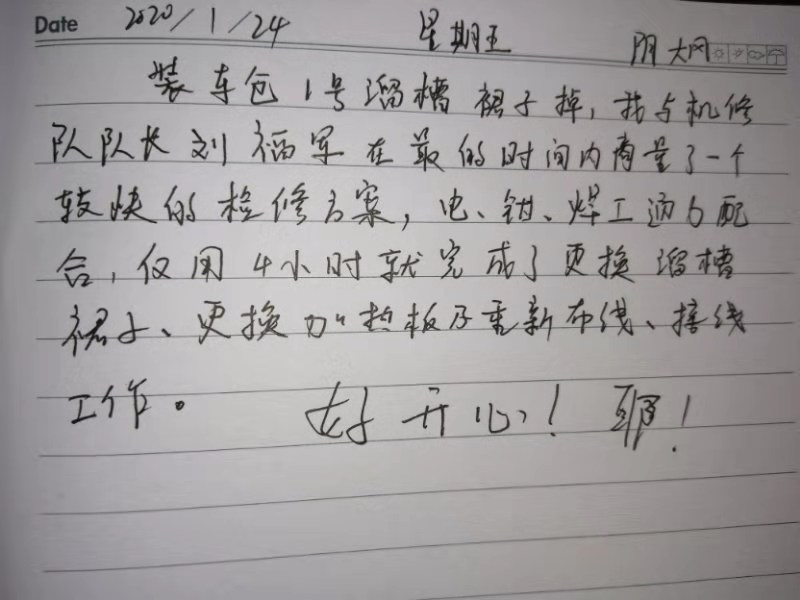 Date 2020/1/24 星期五 阴 大风
装车包1号溜槽裙子掉，我与机修
队队长刘福军在最的时间内商量了一个
较快的检修方案，电、钳、焊工通力配
合，仅用4小时就完成了更换溜槽
裙子、更换加热板及重新布线、接线
工作。 好开心！耶！